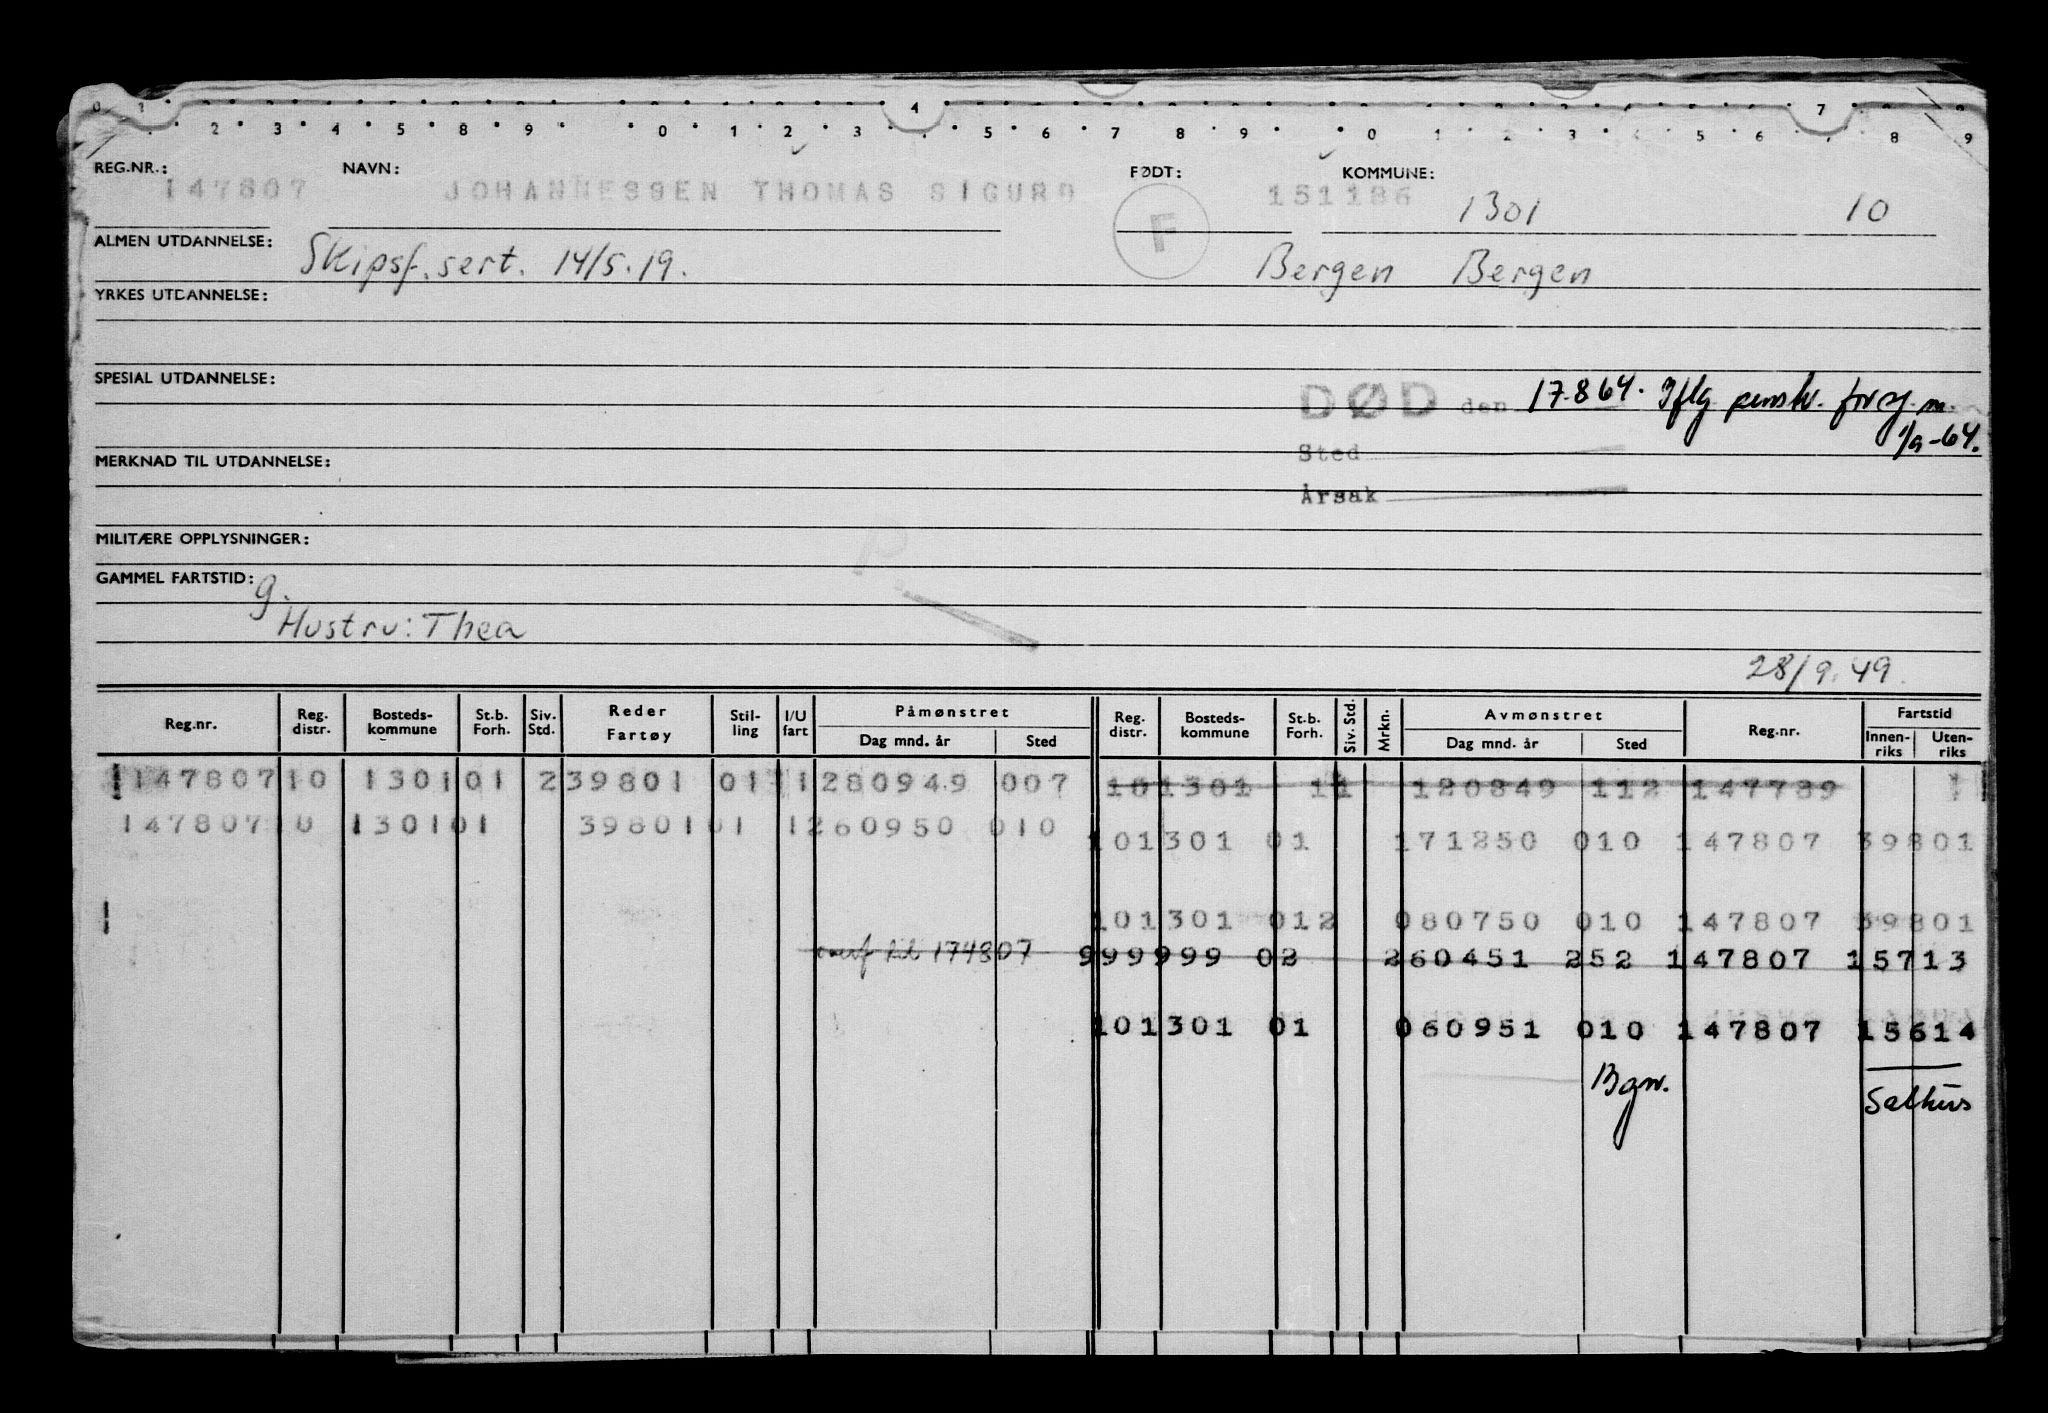 0 1 4 7 9
2 3 4 5 8 9 0 1 2 3 5 6 7 8 9 0 1 2 3 4 5 6 8 9
REG.NR.: NAVN: FØDT: KOMMUNE:
147807 JOHANNESSEN THOMAS SIGURD 151186 1301 10
F
ALMEN UTDANNELSE: Skipsf. sert. 14/5.19. Bergen Bergen
YRKES UTDANNELSE:
SPESIAL UTDANNELSE:
DØD den 17.8 64. Iflg. penskr. fors. m.
1/9-64.
Sted
MERKNAD TIL UTDANNELSE:
Årsak
MILITÆRE OPPLYSNINGER:
GAMMEL FARTSTID:
g.
Hustru: Thea
28/9.49.
Reg.nr. Reg. distr. Bosteds-kommune St.b. Forh. Siv. Std. Reder Fartøy Stil-ling I/U fart Påmønstret Dag mnd. år Sted Reg. distr. Bosteds-kommune St.b. Forh. Siv. Std. Mrkn. Avmønstret Dag mnd. år Sted Reg.nr. Fartstid Innen-riks Uten-riks
147807 10 1301 01 2 39801 01 1 280949 007 101301 11 120849 112 147789
147807 10 1301 01 39801 01 1 260950 010
101301 01 171250 010 147807 39801
101301 012 080750 010 147807 39801
overf til 174807 999999 02 260451 252 147807 15713
101301 01 060951 010 147807 15614
Bgn.
Salhus